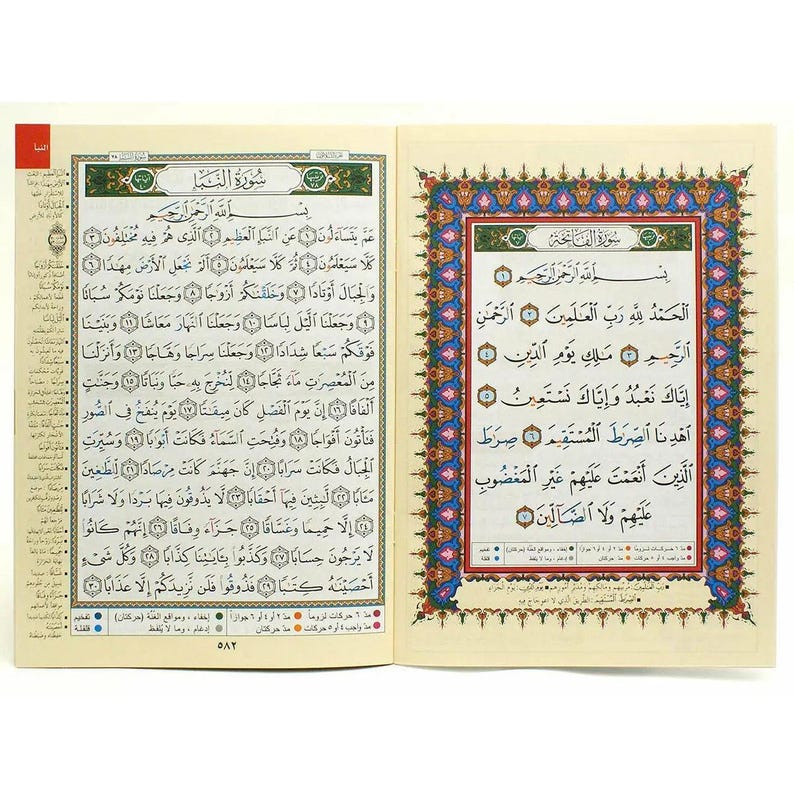 سُورَةُ الفَاتِحَةِ
بِسْمِ اللَّهِ الرَّحْمَٰنِ الرَّحِيمِ ١
الْحَمْدُ لِلَّهِ رَبِّ الْعَالَمِينَ ٢ الرَّحْمَٰنِ
الرَّحِيمِ ٣ مَالِكِ يَوْمِ الدِّينِ ٤
إِيَّاكَ نَعْبُدُ وَإِيَّاكَ نَسْتَعِينُ ٥
اهْدِنَا الصِّرَاطَ الْمُسْتَقِيمَ ٦ صِرَاطَ
الَّذِينَ أَنْعَمْتَ عَلَيْهِمْ غَيْرِ الْمَغْضُوبِ
عَلَيْهِمْ وَلَا الضَّالِّينَ ٧
مدّ ٦ حركات لزوماً مدّ ٢ أو ٤ أو ٦ جوازاً إخفاء، ومواقع الغُنَّة (حركتان) تفخيم
مدّ واجب ٤ أو ٥ حركات مدّ حركتان إدغام، وما لا يُلفظ قلقلة
النبأ
سُورَةُ النَّبَإِ
بِسْمِ اللَّهِ الرَّحْمَٰنِ الرَّحِيمِ
عَمَّ يَتَسَاءَلُونَ ١ عَنِ النَّبَإِ الْعَظِيمِ ٢ الَّذِي هُمْ فِيهِ مُخْتَلِفُونَ ٣
كَلَّا سَيَعْلَمُونَ ٤ ثُمَّ كَلَّا سَيَعْلَمُونَ ٥ أَلَمْ نَجْعَلِ الْأَرْضَ مِهَادًا ٦
وَالْجِبَالَ أَوْتَادًا ٧ وَخَلَقْنَاكُمْ أَزْوَاجًا ٨ وَجَعَلْنَا نَوْمَكُمْ سُبَاتًا
٩ وَجَعَلْنَا اللَّيْلَ لِبَاسًا ١٠ وَجَعَلْنَا النَّهَارَ مَعَاشًا ١١ وَبَنَيْنَا
فَوْقَكُمْ سَبْعًا شِدَادًا ١٢ وَجَعَلْنَا سِرَاجًا وَهَّاجًا ١٣ وَأَنزَلْنَا
مِنَ الْمُعْصِرَاتِ مَاءً ثَجَّاجًا ١٤ لِّنُخْرِجَ بِهِ حَبًّا وَنَبَاتًا ١٥ وَجَنَّاتٍ
أَلْفَافًا ١٦ إِنَّ يَوْمَ الْفَصْلِ كَانَ مِيقَاتًا ١٧ يَوْمَ يُنفَخُ فِي الصُّورِ
فَتَأْتُونَ أَفْوَاجًا ١٨ وَفُتِحَتِ السَّمَاءُ فَكَانَتْ أَبْوَابًا ١٩ وَسُيِّرَتِ
الْجِبَالُ فَكَانَتْ سَرَابًا ٢٠ إِنَّ جَهَنَّمَ كَانَتْ مِرْصَادًا ٢١ لِّلطَّاغِينَ
مَآبًا ٢٢ لَّابِثِينَ فِيهَا أَحْقَابًا ٢٣ لَّا يَذُوقُونَ فِيهَا بَرْدًا وَلَا شَرَابًا
٢٤ إِلَّا حَمِيمًا وَغَسَّاقًا ٢٥ جَزَاءً وِفَاقًا ٢٦ إِنَّهُمْ كَانُوا
لَا يَرْجُونَ حِسَابًا ٢٧ وَكَذَّبُوا بِآيَاتِنَا كِذَّابًا ٢٨ وَكُلَّ شَيْءٍ
أَحْصَيْنَاهُ كِتَابًا ٢٩ فَذُوقُوا فَلَن نَّزِيدَكُمْ إِلَّا عَذَابًا ٣٠
مدّ ٦ حركات لزوماً مدّ ٢ أو ٤ أو ٦ جوازاً إخفاء، ومواقع الغُنَّة (حركتان) تفخيم
مدّ واجب ٤ أو ٥ حركات مدّ حركتان إدغام، وما لا يُلفظ قلقلة
٥٨٢